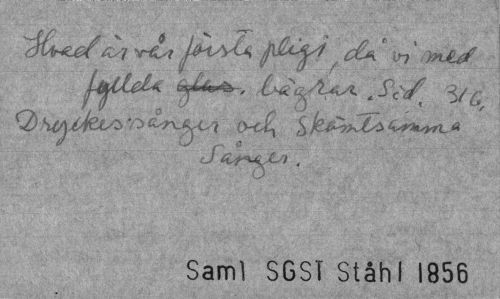 Hvad är vår första pligt, då vi med
fyllda glas. bägrar. Sid. 316.
Dryckessånger och Skämtsamma
Sånger.
Saml SGST Ståhl 1856